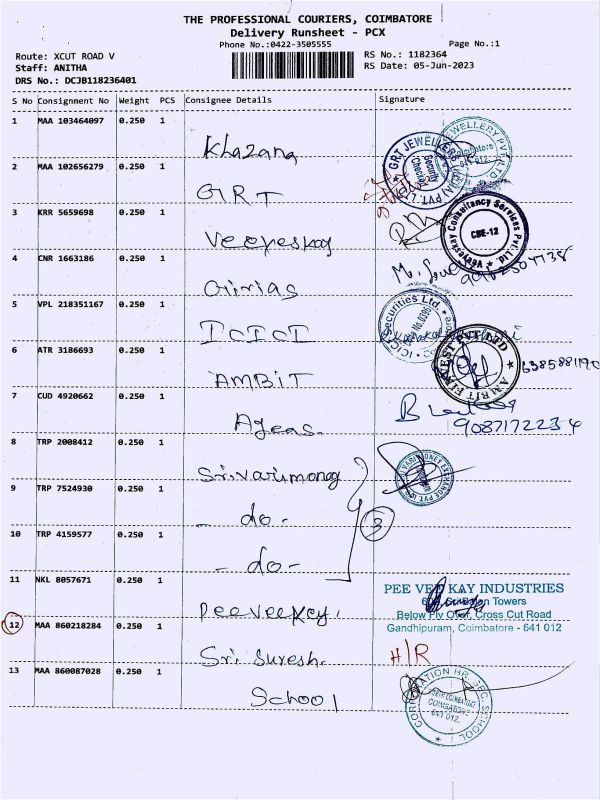 THE PROFESSIONAL COURIERS, COIMBATORE
Delivery Runsheet - PCX
Phone No.:0422-3505555
Page No.:1
Route: XCUT ROAD V
RS No.: 1182364
Staff: ANITHA
RS Date: 05-Jun-2023
DRS No.: DCJB118236401
S No Consignment No Weight PCS Consignee Details Signature
1 MAA 103464097 0.250 1 Khazana
JEWELLERY PVT LTD
641 012.
2 MAA 102656279 0.250 1 GRT
GRT JEWELLERS
Security
3 KRR 5659698 0.250 1 Veeyeskay
Veeyeskay Consultancy Services Pvt. Ltd.
CBE-12
4 CNR 1663186 0.250 1 Girias
5 VPL 218351167 0.250 1 ICICI
ICICI Securities Ltd.
6 ATR 3186693 0.250 1 AMBIT
AMBIT FINVEST PVT LTD
6385881190
7 CUD 4920662 0.250 1 Ageas
9087172234
8 TRP 2008412 0.250 1 Srivarimoney
9 TRP 7524930 0.250 1 - do -
3
10 TRP 4159577 0.250 1 - do -
11 NKL 8057671 0.250 1 Peeveekay
PEE VEE KAY INDUSTRIES
Towers
Below Fly Over, Cross Cut Road
Gandhipuram, Coimbatore - 641 012
12 MAA 860218284 0.250 1 Sri Suresh
H/R
13 MAA 860087028 0.250 1 School
CORPORATION HR. SEC. SCHOOL
COIMBATORE
641 012.